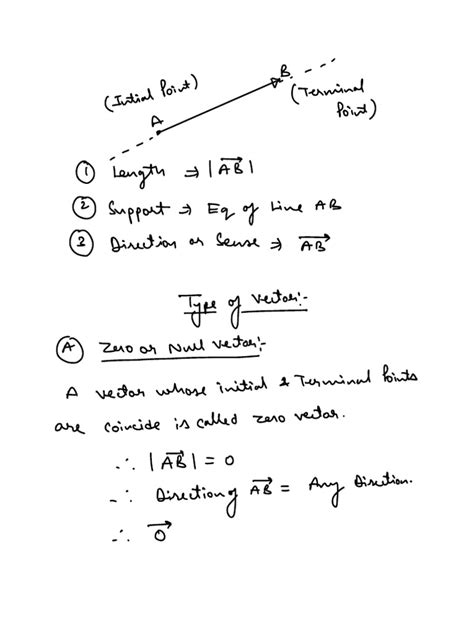 (Initial Point)
A
B
(Terminal
Point)
① Length ⇒ |AB→|
② Support ⇒ Eq of Line AB
③ Direction or Sense ⇒ AB→
Type of vector:-
Ⓐ Zero or Null vector:-
A vector whose initial & Terminal Points
are coincide is called zero vector.
∴ |AB→| = 0
∴ Direction of AB→ = Any Direction.
∴ 0→